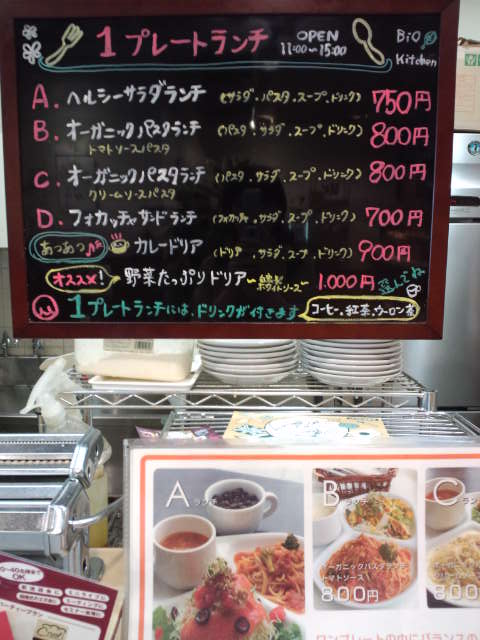 1プレートランチ OPEN 11:00～15:00 BiO Kitchen
A. ヘルシーサラダランチ (サラダ.パスタ.スープ.ドリンク) 750円
B. オーガニックパスタランチ (パスタ.サラダ.スープ.ドリンク) 800円
トマトソースパスタ
C. オーガニックパスタランチ (パスタ.サラダ.スープ.ドリンク) 800円
クリームソースパスタ
D. フォカッチャサンドランチ (フォカッチャ.サラダ.スープ.ドリンク) 700円
あつあつ カレードリア (ドリア.サラダ.スープ.ドリンク) 900円
オススメ! 野菜たっぷりドリア ～自家製ホワイトソース～ 1.000円 選んでね
1プレートランチには、ドリンクが付きます コーヒー.紅茶.ウーロン茶
A ランチ
B ランチ
C ランチ
オーガニックパスタランチ
トマトソース
800円
800
ワンプレートの中にバランスの
OK